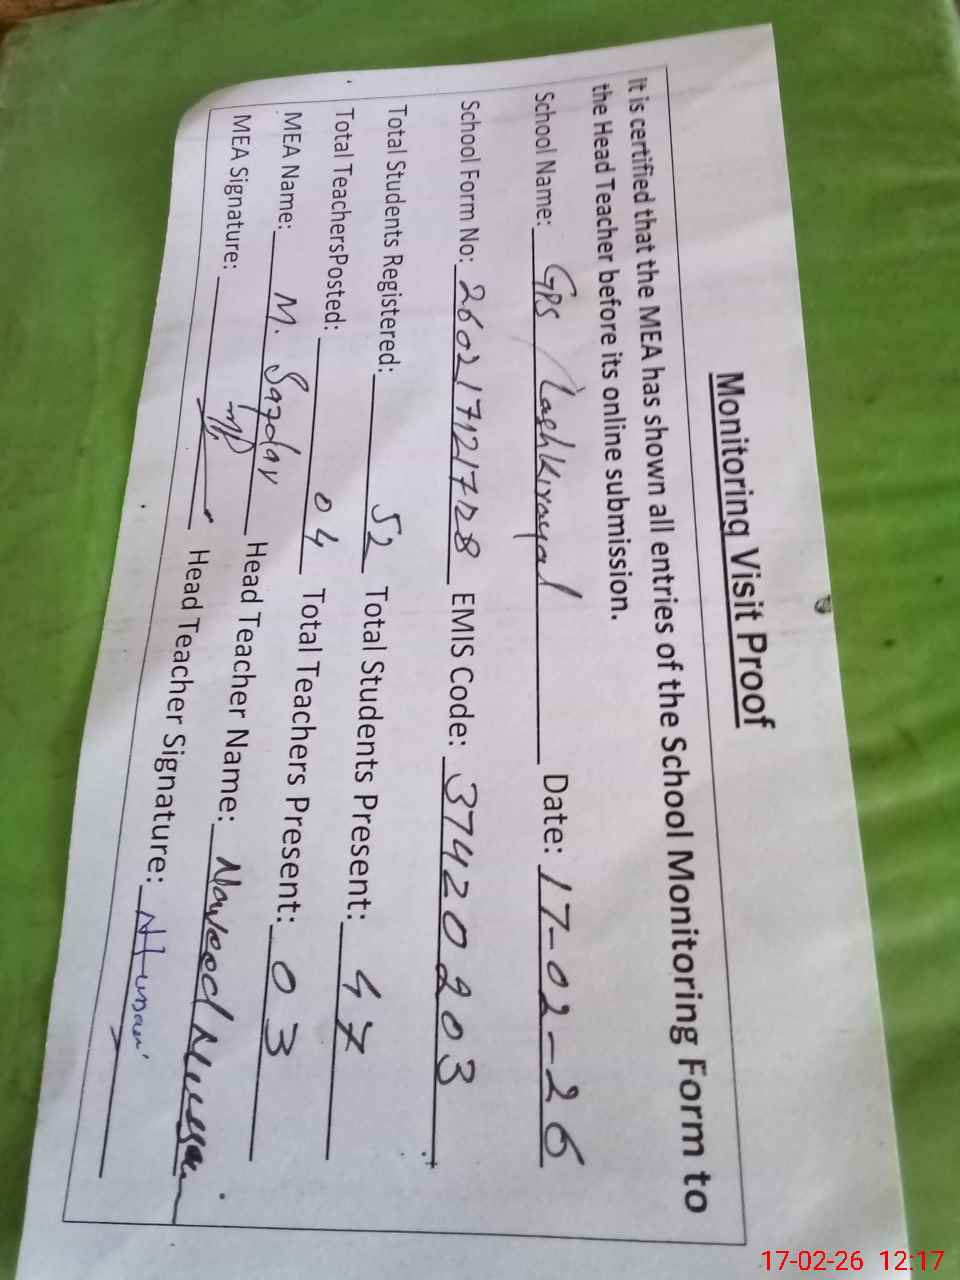 Monitoring Visit Proof
It is certified that the MEA has shown all entries of the School Monitoring Form to
the Head Teacher before its online submission.
School Name: GPS Date: 17-02-26
School Form No: 260217121728 EMIS Code: 37420203
Total Students Registered: 52 Total Students Present: 47
Total TeachersPosted: 04 Total Teachers Present: 03
MEA Name: M. Head Teacher Name:
MEA Signature: Head Teacher Signature:
17-02-26 12:17